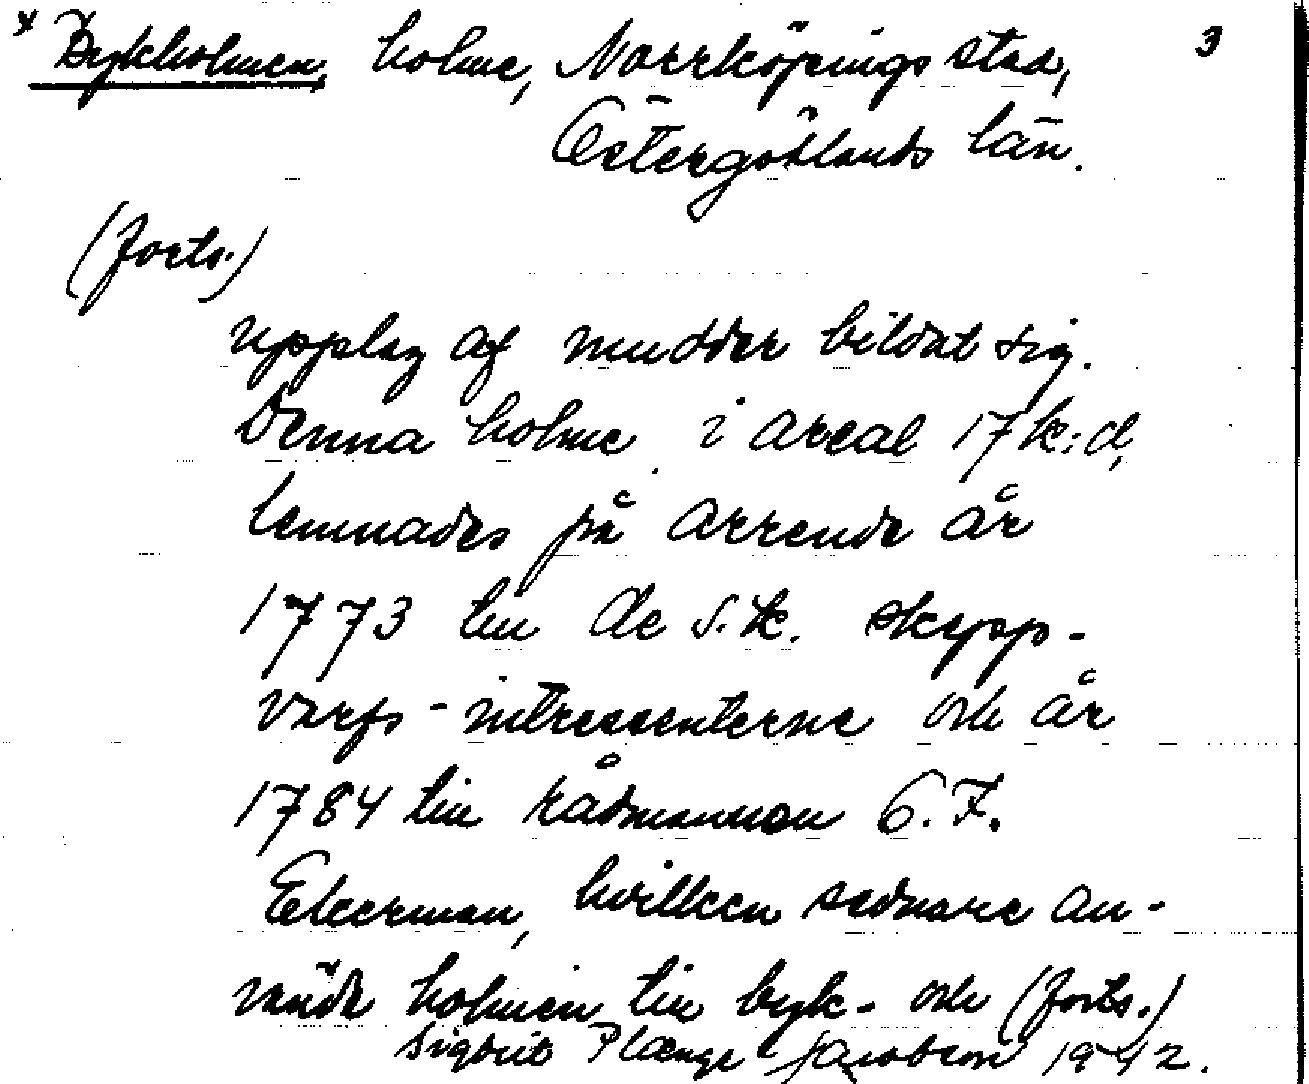 * Bykholmen, holme, Norrköpings stad, 3
Östergötlands län.
(forts.)
upplag af mudder bildat sig.
Denna holme i areal 17 k:d,
lemnades på arrende år
1773 till de s.k. skepp-
varfs-intressenterne och år
1784 till rådmannen C. F.
Ekerman, hvilken sednare an-
vände holmen till byk- och (forts.)
Sigbrit Plænge Jacobson 1942.